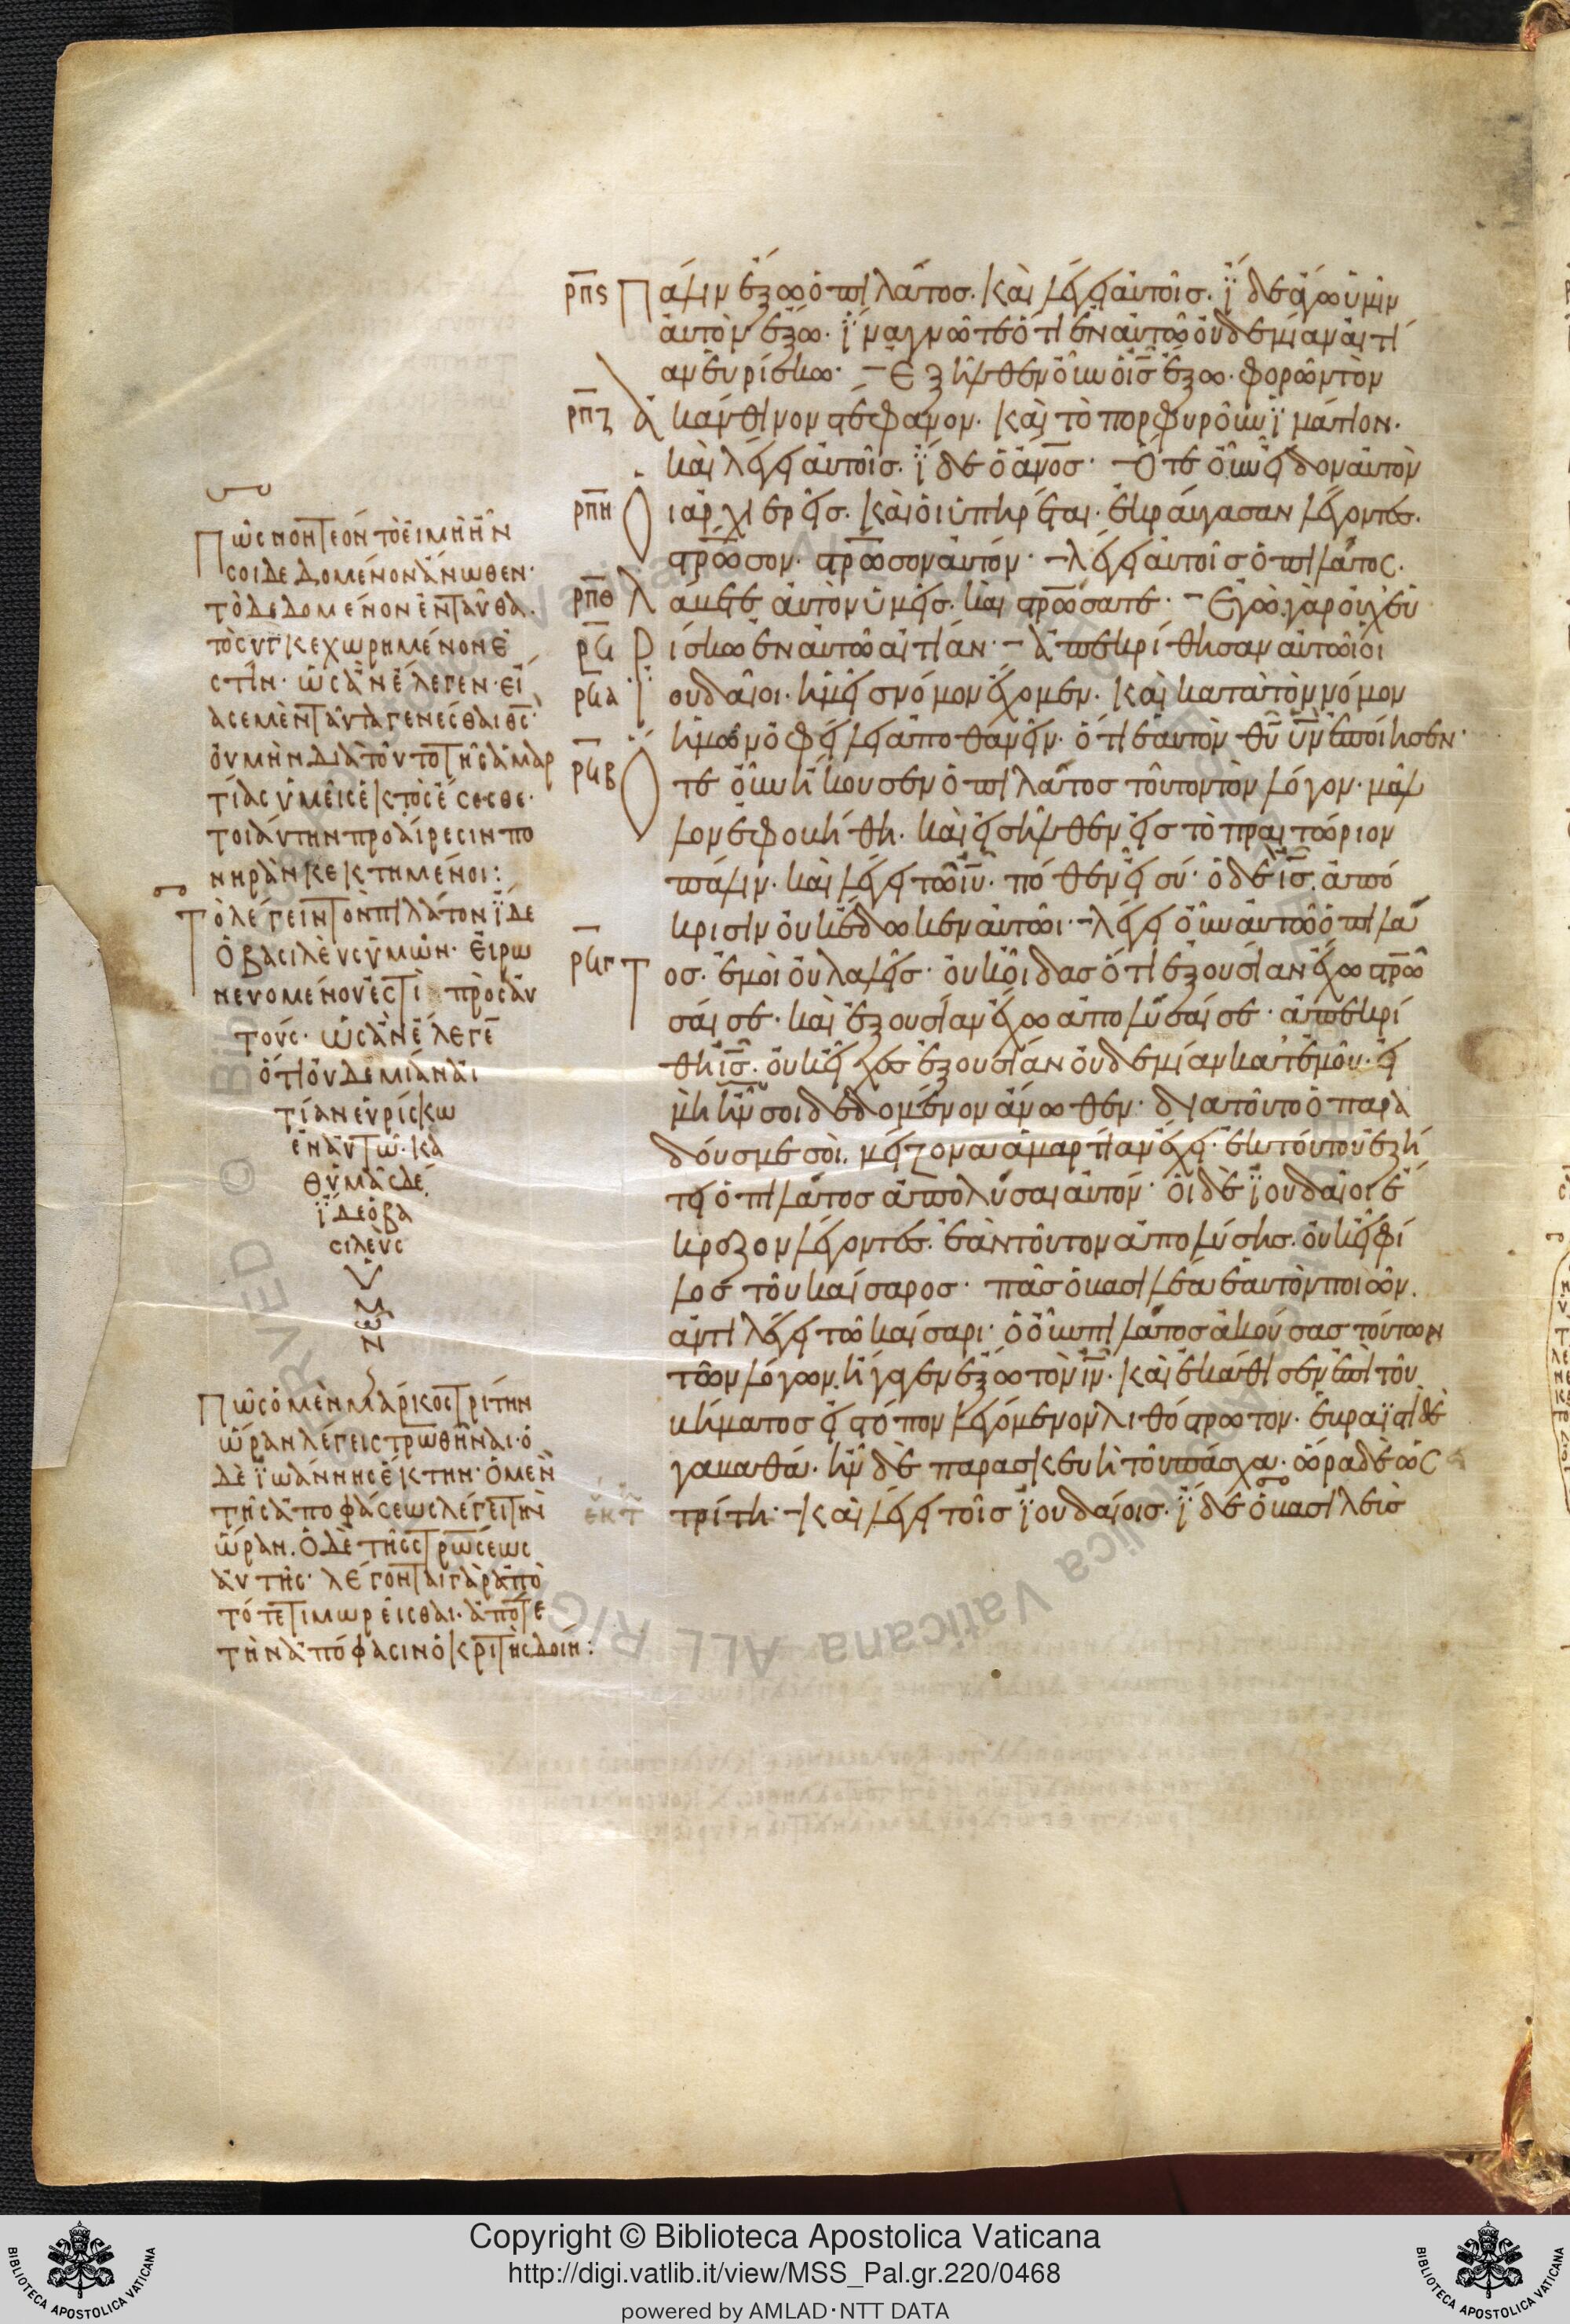 ρπϛ Πάλιν ἔξω ὁ πιλᾶτος. καὶ λέγει αὐτοῖς. ἴδε ἄγω ὑμῖν
αὐτὸν ἔξω. ἵνα γνῶτε ὅτι ἐν αὐτῶ οὐδεμίαν αἰτί
αν εὑρίσκω· Ἐξῆλθεν οὖν ὁ ις̅ ἔξω. φορῶν τὸν
ρπζ ἀκάνθινον στέφανον. καὶ τὸ πορφυροῦν ἱμάτιον.
καὶ λέγει αὐτοῖς. ἴδε ὁ αν̅ος· Ὅτε οὖν εἶδον αὐτὸν
ρπη Οἱ ἀρχιερεῖς. καὶ οἱ ὑπηρέται. ἐκραύγασαν λέγοντες.
στρ̅ωσον. στρ̅ωσον αὐτόν· λέγει αὐτοῖς ὁ πιλᾶτος.
ρπθ Λάβετε αὐτὸν ὑμεῖς. καὶ στρ̅ωσατε· Ἐγὼ γὰρ οὐχ εὑ
ρϟ Ρίσκω ἐν αὐτῶ αἰτίαν· ἀπεκρίθησαν αὐτῶ οἱ
ρϟα Ἰουδαῖοι. ἡμεῖς νόμον ἔχομεν. καὶ κατὰ τὸν νόμον
ἡμῶν ὀφείλει ἀποθανεῖν. ὅτι ἑαυτὸν θυ̅ υν̅ ἐποίησεν·
ρϟβ Ὅτε οὖν ἤκουσεν ὁ πιλᾶτος τοῦτον τὸν λόγον. μᾶλ
λον ἐφοβήθη. καὶ εἰσῆλθεν εἰς τὸ πραιτώριον
πάλιν. καὶ λέγει τῶ ιυ̅. πόθεν εἶ σύ· ὁ δὲ ις̅. ἀπό
κρισιν οὐκ ἔδωκεν αὐτῶι· λέγει οὖν αὐτῶ ὁ πιλᾶ
ρϟγ Τος. ἐμοὶ οὐ λαλεῖς· οὐκ οἶδας ὅτι ἐξουσίαν ἔχω στρ̅ω
σαί σε. καὶ ἐξουσίαν ἔχω ἀπολῦσαί σε· ἀπεκρί
θη ις̅. οὐκ εἶχες ἐξουσίαν οὐδεμίαν κατ' ἐμοῦ. εἰ
μὴ ἦν σοι δεδομένον ἄνωθεν· διατοῦτο ὁ παρα
δούς με σοὶ. μείζονα ἁμαρτίαν ἔχει. ἐκ τούτου ἐζή
τει ὁ πιλᾶτος ἀπολῦσαι αὐτόν· οἱ δὲ ἰουδαῖοι ἔ
κραζον λέγοντες. ἐὰν τοῦτον ἀπολύσης. οὐκ εἶ φί
λος τοῦ καίσαρος· πᾶς ὁ βασιλέα ἑαυτὸν ποιῶν.
ἀντιλέγει τῶ καίσαρι· ὁ οὖν πιλᾶτος ἀκούσας τούτων
τῶν λόγων. ἤγαγεν ἔξω τὸν ιν̅. καὶ ἐκάθισεν ἐπὶ τοῦ
βήματος εἰς τόπον λεγόμενον λιθόστρωτον. ἑβραϊστὶ δὲ
γαβαθά. ἦν δὲ παρασκευὴ τοῦ πάσχα. ὥρα δὲ ὡς
ἕκτ τρίτη· καὶ λέγει τοῖς ἰουδαίοις. ἴδε ὁ βασιλεὺς
Πῶς νοητέον τὸ εἰ μὴ ἦν
σοι δεδομένον ἄνωθεν·
τὸ δεδομένον ἐνταῦθα.
τὸ συγκεχωρημένον ἐ
στίν· ὡς ἂν ἔλεγεν· εἴ
ασε μὲν ταῦτα γενέσθαι θς̅·
οὐ μὴν διὰ τοῦτο τῆς ἁμαρ
τίας ὑμεῖς ἐκτὸς ἔσεσθε·
τοιαύτην προαίρεσιν πο
νηρὰν κεκτημένοι:
Τὸ λέγειν τὸν πιλάτον ἴδε
ὁ βασιλεὺς ὑμῶν· εἰρω
νευομένου ἐστὶ πρὸς αὐ
τούς· ὡς ἂν ἔλεγε̅
ὅτι οὐδεμίαν αἰ
τίαν εὑρίσκω
ἐν αὐτῶ· κα
θ' ὑμᾶς δέ,
ἴδε ὁ βα
σιλεὺς
Πῶς ὁ μὲν μάρκος τρίτην
ὥραν λέγει στρωθῆναι· ὁ
δὲ ἰωάννης ἕκτην· ὁ μὲν
τῆς ἀποφάσεως λέγει τὴν
ὥραν. ὁ δὲ τῆς στρώσεως
αὐτῆς· λέγονται γὰρ ἀπὸ
τότε τιμωρεῖσθαι· ἀπότε
τὴν ἀπόφασιν ὁ κριτὴς δοίη:
Copyright © Biblioteca Apostolica Vaticana
http://digi.vatlib.it/view/MSS_Pal.gr.220/0468
powered by AMLAD·NTT DATA
BIBLIOTECA APOSTOLICA VATICANA
BIBLIOTECA APOSTOLICA VATICANA